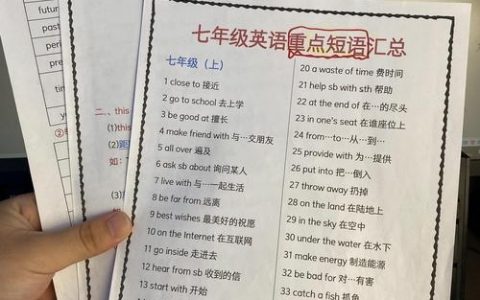 future
past
peri
pres
tim
二、this
(1)this
(2)距
如:
(3)
七年级英语重点短语汇总
七年级(上)
1 close to 接近
2 go to school 去上学
3 be good at 擅长
4 make friend with 与…交朋友
5 all over 遍及
6 ask sb about 询问某人
7 live with 与…一起生活
8 be far from 远离
9 best wishes 最美好的祝愿
10 on the Internet 在互联网
11 go inside 走进去
12 hear from sb 收到的信
13 start with 开始
20 a waste of time 费时间
21 help sb with sth 帮助
22 at the end of 在…的尽头
23 in one's seat 在谁座位上
24 from…to…从…到…
25 provide with 为…提供
26 put into 把…倒入
27 throw away 扔掉
28 on the land 在陆地上
29 in the sky 在空中
30 under the water 在水下
31 make energy 制造能源
32 be bad for 对…有害
33 catch a fish 抓鱼